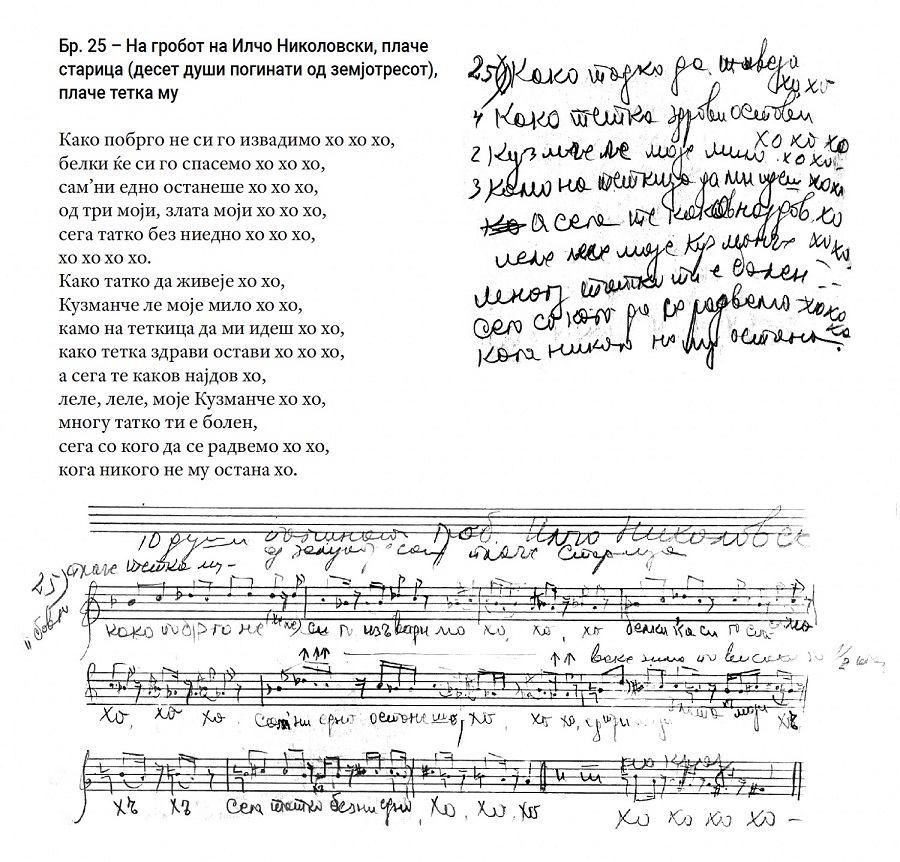 Бр. 25 – На гробот на Илчо Николовски, плаче
старица (десет души погинати од земјотресот),
плаче тетка му
Како побрго не си го извадимо хо хо хо,
белки ќе си го спасемо хо хо хо,
сам’ни едно останеше хо хо хо,
од три моји, злата моји хо хо хо,
сега татко без ниедно хо хо хо,
хо хо хо хо.
Како татко да живеје хо хо,
Кузманче ле моје мило хо хо,
камо на теткица да ми идеш хо хо,
како тетка здрави остави хо хо хо,
а сега те каков најдов хо,
леле, леле, моје Кузманче хо хо,
многу татко ти е болен,
сега со кого да се радвемо хо хо,
кога никого не му остана хо.
25) Како татко да живеја
хо хо
4 Како тетка здрави остави
хо хо хо
2 Кузманче ле моје мило хо хо
3 камо на теткица да ми идеш хохо
а сега те каков најдов хо
леле леле моје Кузманче хо хо
многу татко ти е болен
сега со кого да се радвемо хохо
хо
кога никого не му остана.
10 души Гроб. Илчо Николовск
плаче старица
25) плаче тетка му-
како побрго не си го извадимо хо, хо, хо белки ќа си го спа хо
хо, хо хо. сам'ни едно останеше, хо, хо хо, злата моји хъ
хъ хъ сега татко без ниедно хо, хо, хо хо хо хо хо –